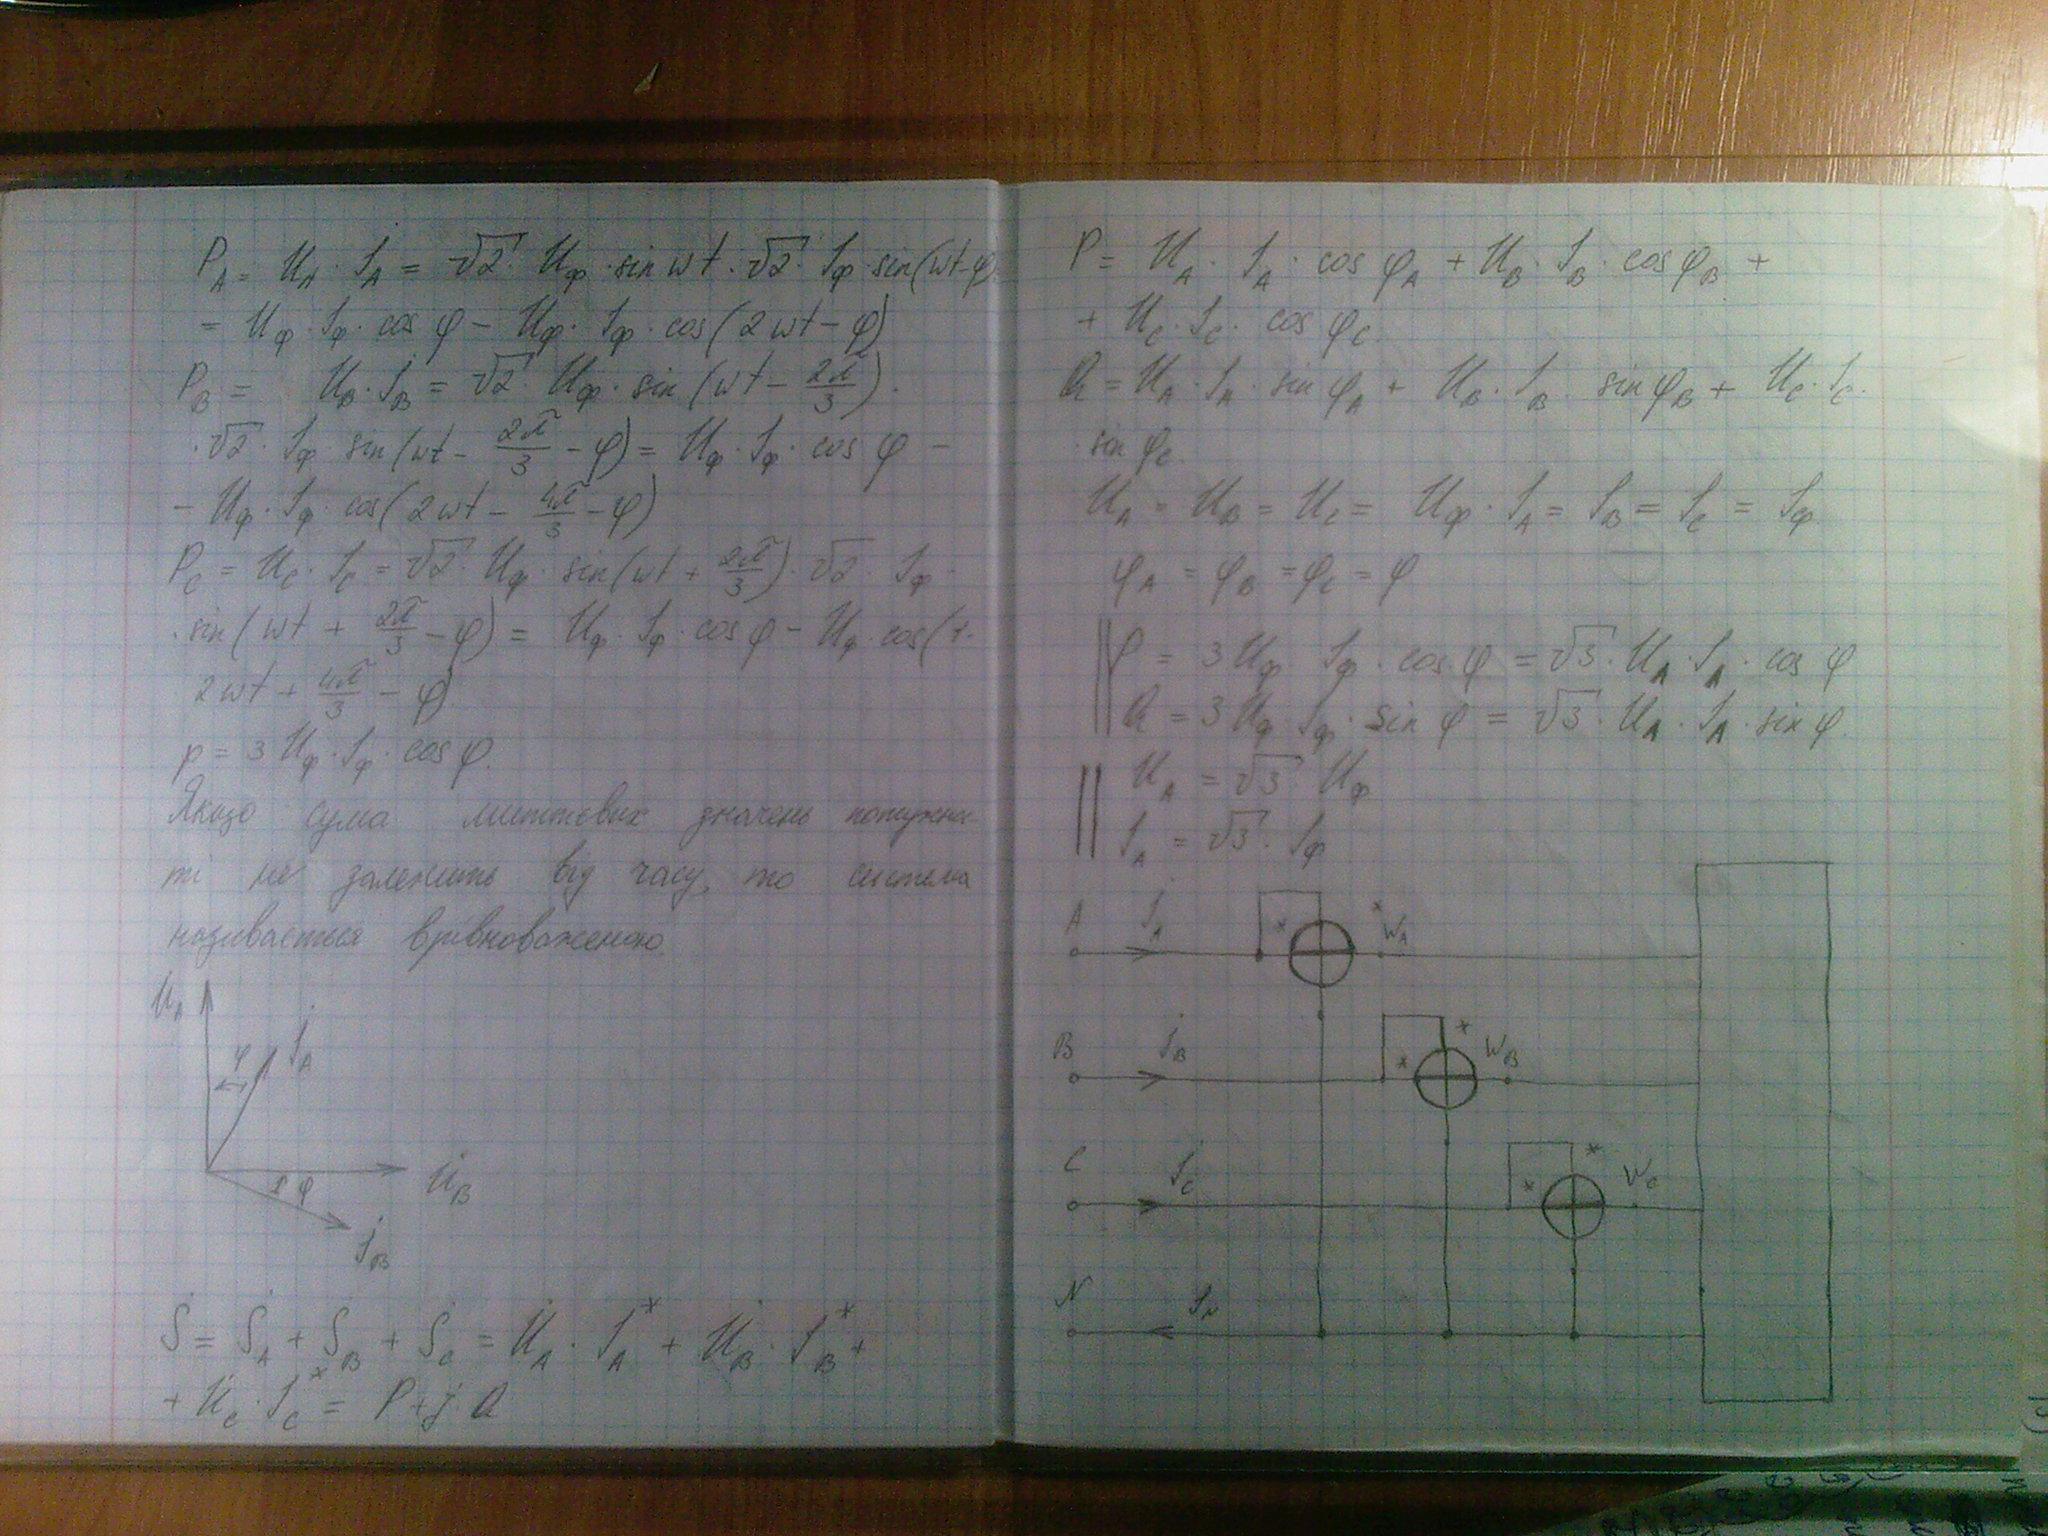 P_A = U_A · I_A = √2 · U_ф · sin wt · √2 · I_ф · sin(wt-φ)
= U_ф · I_ф · cos φ - U_ф · I_ф · cos(2wt - φ)
P_B = U_B · I_B = √2 · U_ф · sin(wt - 2π/3) ·
· √2 · I_ф · sin(wt - 2π/3 - φ) = U_ф · I_ф · cos φ -
- U_ф · I_ф · cos(2wt - 4π/3 - φ)
P_C = U_C · I_C = √2 · U_ф · sin(wt + 2π/3) · √2 · I_ф ·
· sin(wt + 2π/3 - φ) = U_ф · I_ф · cos φ - U_ф · cos(
2wt + 4π/3 - φ)
p = 3 U_ф · I_ф · cos φ.
Якщо сума миттєвих значень потужнос-
ті не залежить від часу, то система
називається врівноваженою.
U_A
φ
İ_A
U̇_B
φ
İ_B
Ṡ = Ṡ_A + Ṡ_B + Ṡ_C = U̇_A · I_A* + U̇_B · I_B* +
+ U̇_C · I_C* = P + j Q
P = U_A · I_A · cos φ_A + U_B · I_B · cos φ_B +
+ U_C · I_C · cos φ_C.
Q = U_A · I_A · sin φ_A + U_B · I_B · sin φ_B + U_C · I_C ·
· sin φ_C.
U_A = U_B = U_C = U_ф · I_A = I_B = I_C = I_ф
φ_A = φ_B = φ_C = φ
P = 3 U_ф · I_ф · cos φ = √3 · U_Л · I_Л · cos φ
Q = 3 U_ф · I_ф · sin φ = √3 · U_Л · I_Л · sin φ.
U_Л = √3 · U_ф
I_Л = √3 · I_ф
A İ_A * * W_A
B İ_B * * W_B
C İ_C * * W_C
N I_N